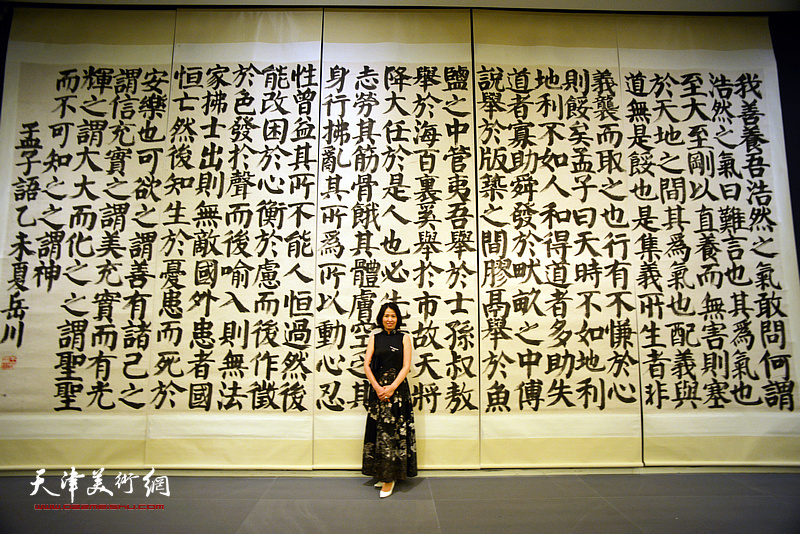 我善養吾浩然之氣敢問何謂
浩然之氣曰難言也其為氣也
至大至剛以直養而無害則塞
於天地之間其為氣也配義與
道無是餒也是集義所生者非
義襲而取之也行有不慊於心
則餒矣孟子曰天時不如地利
地利不如人和得道者多助失
道者寡助舜發於畎畝之中傅
說舉於版築之間膠鬲舉於魚
鹽之中管夷吾舉於士孫叔敖
舉於海百裏奚舉於市故天將
降大任於是人也必先
志勞其筋骨餓其體膚空乏其
身行拂亂其所為所以動心忍
性曾益其所不能人恒過然後
能改困於心衡於慮而後作徵
於色發於聲而後喻入則無法
家拂士出則無敵國外患者國
恒亡然後知生於憂患而死於
安樂也可欲之謂善有諸己之
謂信充實之謂美充實而有光
輝之謂大大而化之之謂聖聖
而不可知之之謂神
孟子語乙未夏岳川
天津美術網